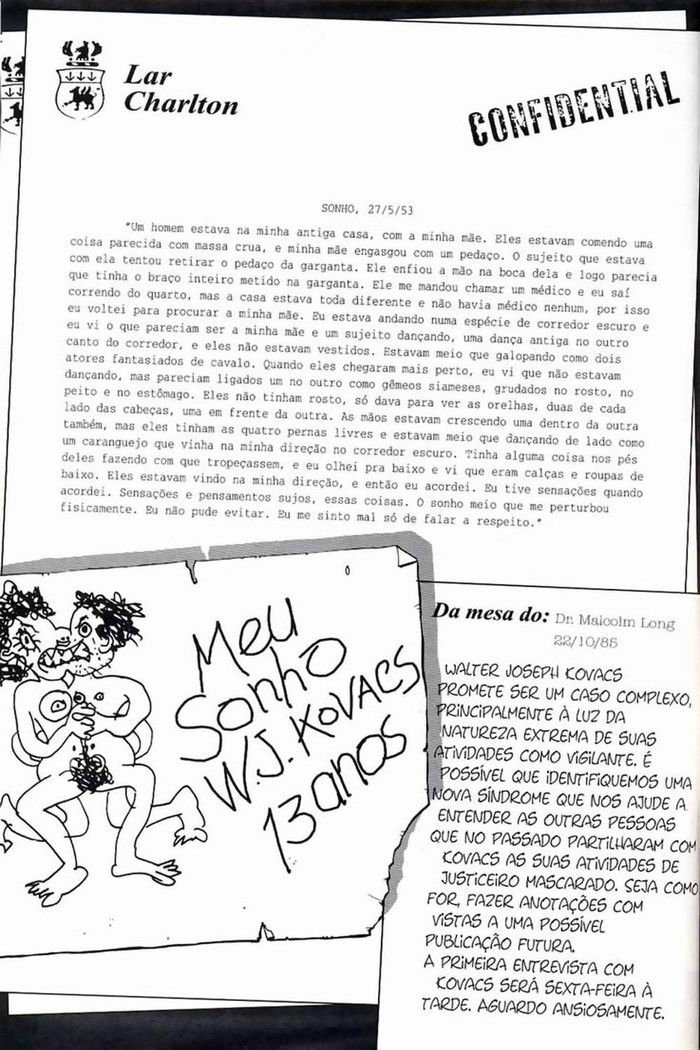 Lar
Charlton
CONFIDENTIAL
SONHO, 27/5/53
"Um homem estava na minha antiga casa, com a minha mãe. Eles estavam comendo uma
coisa parecida com massa crua, e minha mãe engasgou com um pedaço. O sujeito que estava
com ela tentou retirar o pedaço da garganta. Ele enfiou a mão na boca dela e logo parecia
que tinha o braço inteiro metido na garganta. Ele me mandou chamar um médico e eu saí
correndo do quarto, mas a casa estava toda diferente e não havia médico nenhum, por isso
eu voltei para procurar a minha mãe. Eu estava andando numa espécie de corredor escuro e
eu vi o que pareciam ser a minha mãe e um sujeito dançando, uma dança antiga no outro
canto do corredor, e eles não estavam vestidos. Estavam meio que galopando como dois
atores fantasiados de cavalo. Quando eles chegaram mais perto, eu vi que não estavam
dançando, mas pareciam ligados um no outro como gêmeos siameses, grudados no rosto, no
peito e no estômago. Eles não tinham rosto, só dava para ver as orelhas, duas de cada
lado das cabeças, uma em frente da outra. As mãos estavam crescendo uma dentro da outra
também, mas eles tinham as quatro pernas livres e estavam meio que dançando de lado como
um caranguejo que vinha na minha direção no corredor escuro. Tinha alguma coisa nos pés
deles fazendo com que tropeçassem, e eu olhei pra baixo e vi que eram calças e roupas de
baixo. Eles estavam vindo na minha direção, e então eu acordei. Eu tive sensações quando
acordei. Sensações e pensamentos sujos, essas coisas. O sonho meio que me perturbou
fisicamente. Eu não pude evitar. Eu me sinto mal só de falar a respeito."
MEU
Sonho
W.J. KOVACS
13 anos
Da mesa do: Dr. Malcolm Long
22/10/85
WALTER JOSEPH KOVACS
PROMETE SER UM CASO COMPLEXO,
PRINCIPALMENTE À LUZ DA
NATUREZA EXTREMA DE SUAS
ATIVIDADES COMO VIGILANTE. É
POSSÍVEL QUE IDENTIFIQUEMOS UMA
NOVA SÍNDROME QUE NOS AJUDE A
ENTENDER AS OUTRAS PESSOAS
QUE NO PASSADO PARTILHARAM COM
KOVACS AS SUAS ATIVIDADES DE
JUSTICEIRO MASCARADO. SEJA COMO
FOR, FAZER ANOTAÇÕES COM
VISTAS A UMA POSSÍVEL
PUBLICAÇÃO FUTURA.
A PRIMEIRA ENTREVISTA COM
KOVACS SERÁ SEXTA-FEIRA À
TARDE. AGUARDO ANSIOSAMENTE.